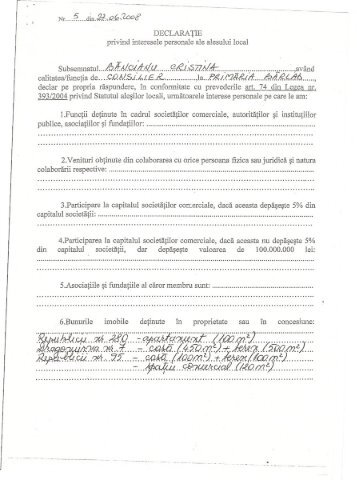 Nr. 5 din 22.06.2008
DECLARAŢIE
privind interesele personale ale alesului local
Subsemnatul BĂNCIANU CRISTINA având
calitatea/funcţia de CONSILIER la PRIMĂRIA BÂRLAD,
declar pe propria răspundere, în conformitate cu prevederile art. 74 din Legea nr.
393/2004 privind Statutul aleşilor locali, următoarele interese personale pe care le am:
1.Funcţii deţinute în cadrul societăţilor comerciale, autorităţilor şi instituţiilor
publice, asociaţiilor şi fundaţiilor:
2.Venituri obţinute din colaborarea cu orice persoana fizica sau juridică şi natura
colaborării respective:
3.Participare la capitalul societăţilor comerciale, dacă aceasta depăşeşte 5% din
capitalul societăţii:
4.Participarea la capitalul societăţilor comerciale, dacă aceasta nu depăşeşte 5%
din capitalul societăţii, dar depăşeşte valoarea de 100.000.000 lei:
5.Asociaţiile şi fundaţiile al căror membru sunt:
6.Bunurile imobile deţinute în proprietate sau în concesiune:
Republicii nr. 280 - apartament (100 m²)
nr. 7 - casă (450 m²) + teren (500 m²)
Republicii nr. 95 - casă (100 m²) + teren (100 m²)
- spaţiu comercial (120 m²)